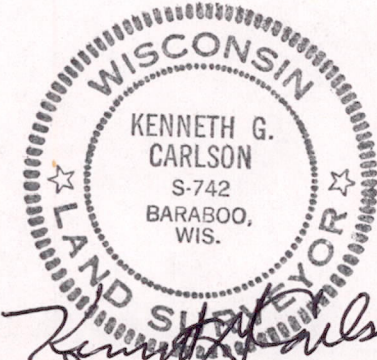 WISCONSIN
KENNETH G.
CARLSON
S-742
BARABOO,
WIS.
LAND SURVEYOR
Kenneth